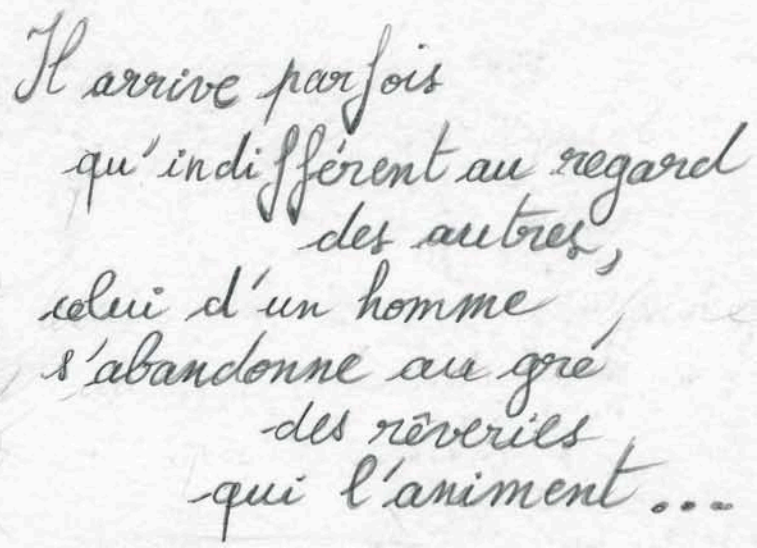 Il arrive parfois
qu'indifférent au regard
des autres,
celui d'un homme
s'abandonne au gré
des rêveries
qui l'animent...